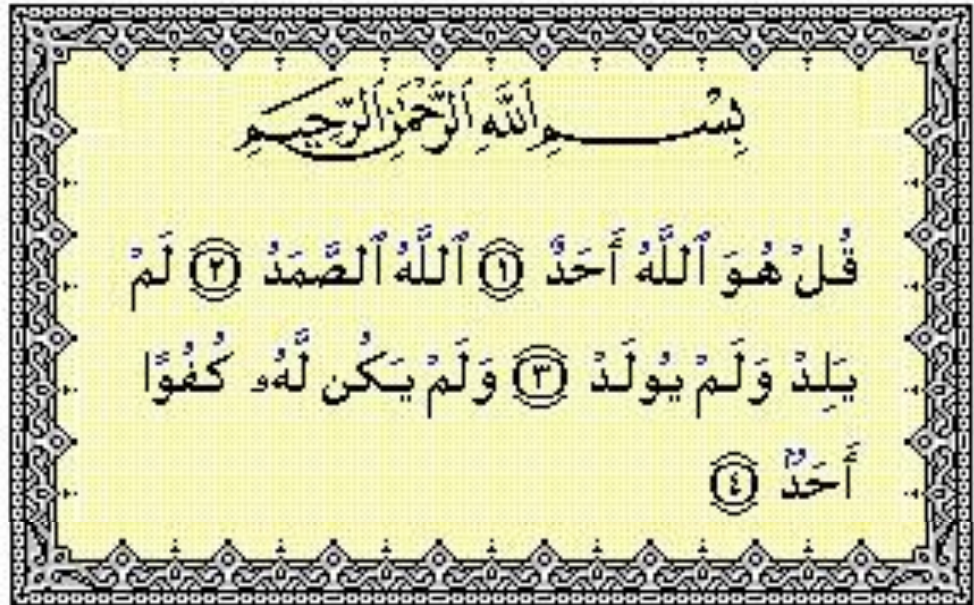 بِسْمِ اللَّهِ الرَّحْمَٰنِ الرَّحِيمِ
قُلْ هُوَ ٱللَّهُ أَحَدٌ ١ ٱللَّهُ ٱلصَّمَدُ ٢ لَمْ
يَلِدْ وَلَمْ يُولَدْ ٣ وَلَمْ يَكُن لَّهُۥ كُفُوًا
أَحَدٌۢ ٤